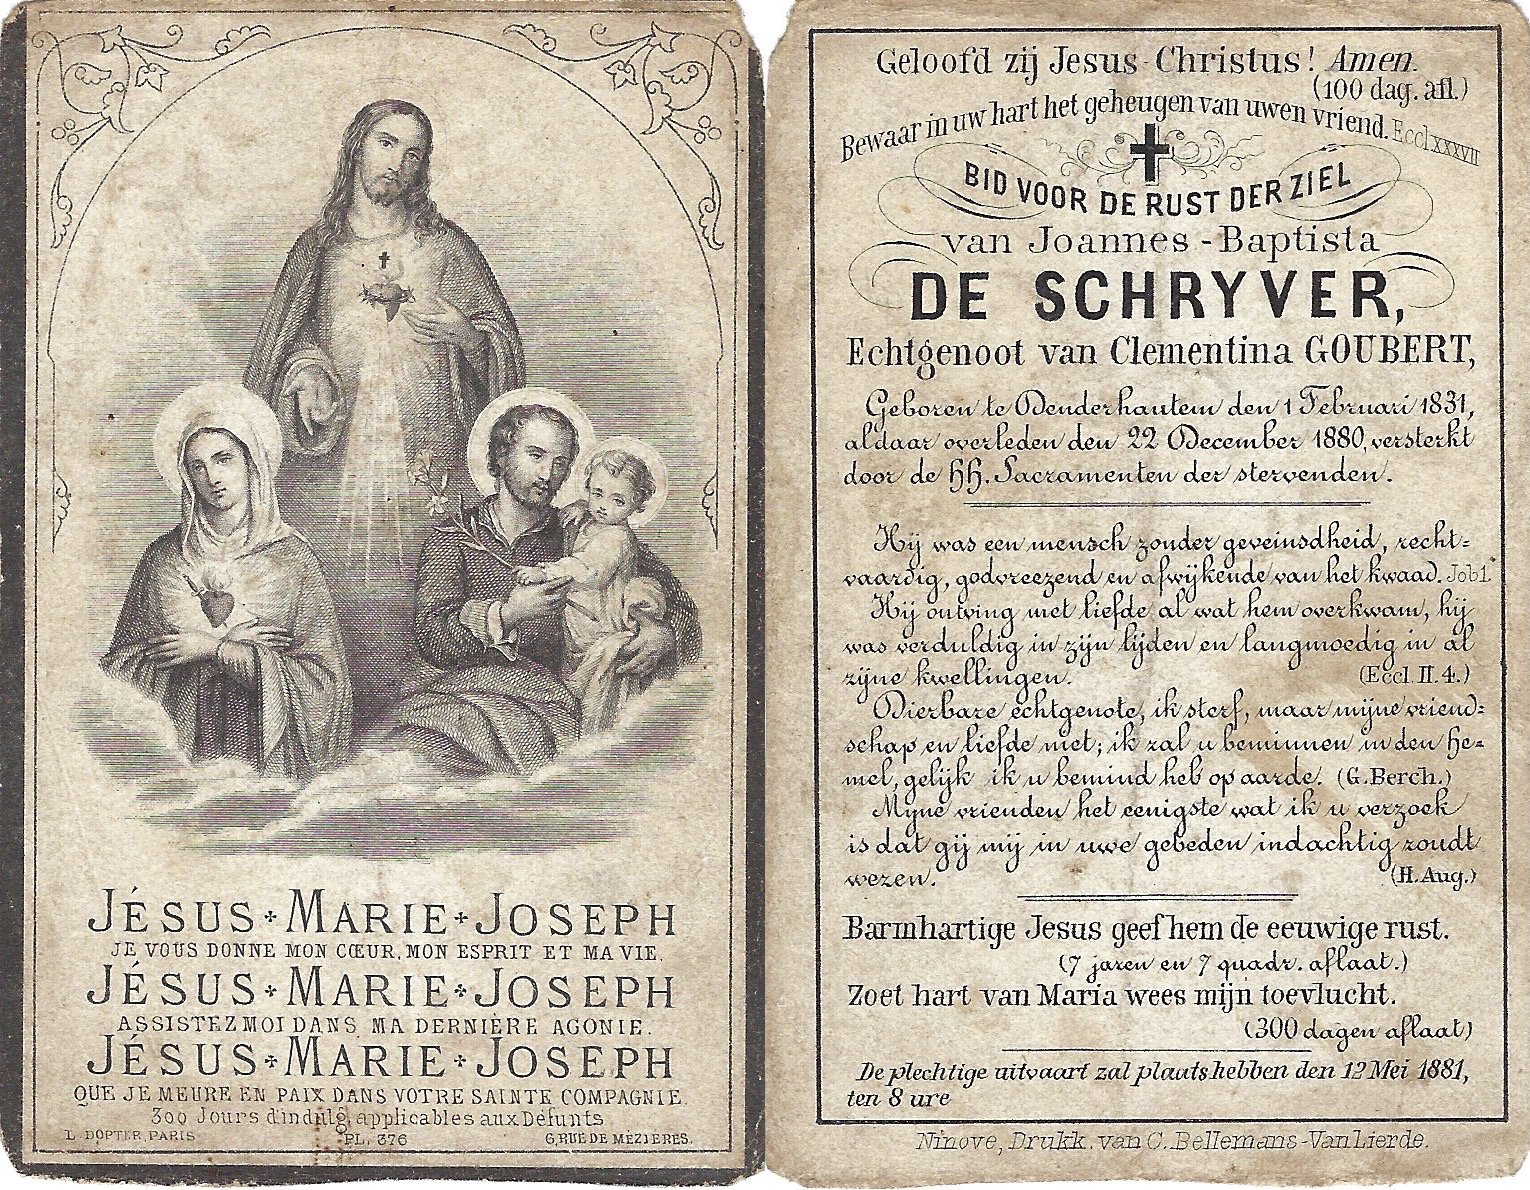 JÉSUS + MARIE + JOSEPH
JE VOUS DONNE MON CŒUR, MON ESPRIT ET MA VIE.
JÉSUS + MARIE + JOSEPH
ASSISTEZ MOI DANS MA DERNIÈRE AGONIE.
JÉSUS + MARIE + JOSEPH
QUE JE MEURE EN PAIX DANS VOTRE SAINTE COMPAGNIE.
300 Jours d'indulg. applicables aux Défunts
L. DOPTER, PARIS PL. 376 6, RUE DE MÉZIÈRES.
Geloofd zij Jesus-Christus! Amen.
(100 dag. afl.)
Bewaar in uw hart het geheugen van uwen vriend. Eccl XXXVII
BID VOOR DE RUST DER ZIEL
van Joannes-Baptista
DE SCHRYVER,
Echtgenoot van Clementina GOUBERT,
Geboren te Denderhautem den 1 Februari 1831,
aldaar overleden den 22 December 1880, versterkt
door de HH. Sacramenten der stervenden.
Hij was een mensch zonder geveinsdheid, recht-
vaardig, godvreezend en afwijkende van het kwaad. Job 1
Hij ontving met liefde al wat hem overkwam, hij
was verduldig in zijn lijden en langmoedig in al
zijne kwellingen. (Eccl. II. 4.)
Dierbare echtgenote, ik sterf, maar mijne vriend-
schap en liefde niet; ik zal u beminnen in den he-
mel, gelijk ik u bemind heb op aarde. (G. Berch.)
Myne vrienden het eenigste wat ik u verzoek
is dat gij mij in uwe gebeden indachtig zoudt
wezen. (H. Aug.)
Barmhartige Jesus geef hem de eeuwige rust.
(7 jaren en 7 quadr. aflaat.)
Zoet hart van Maria wees mijn toevlucht.
(300 dagen aflaat)
De plechtige uitvaart zal plaats hebben den 12 Mei 1881,
ten 8 ure
Ninove, Drukk. van C. Bellemans-Van Lierde.